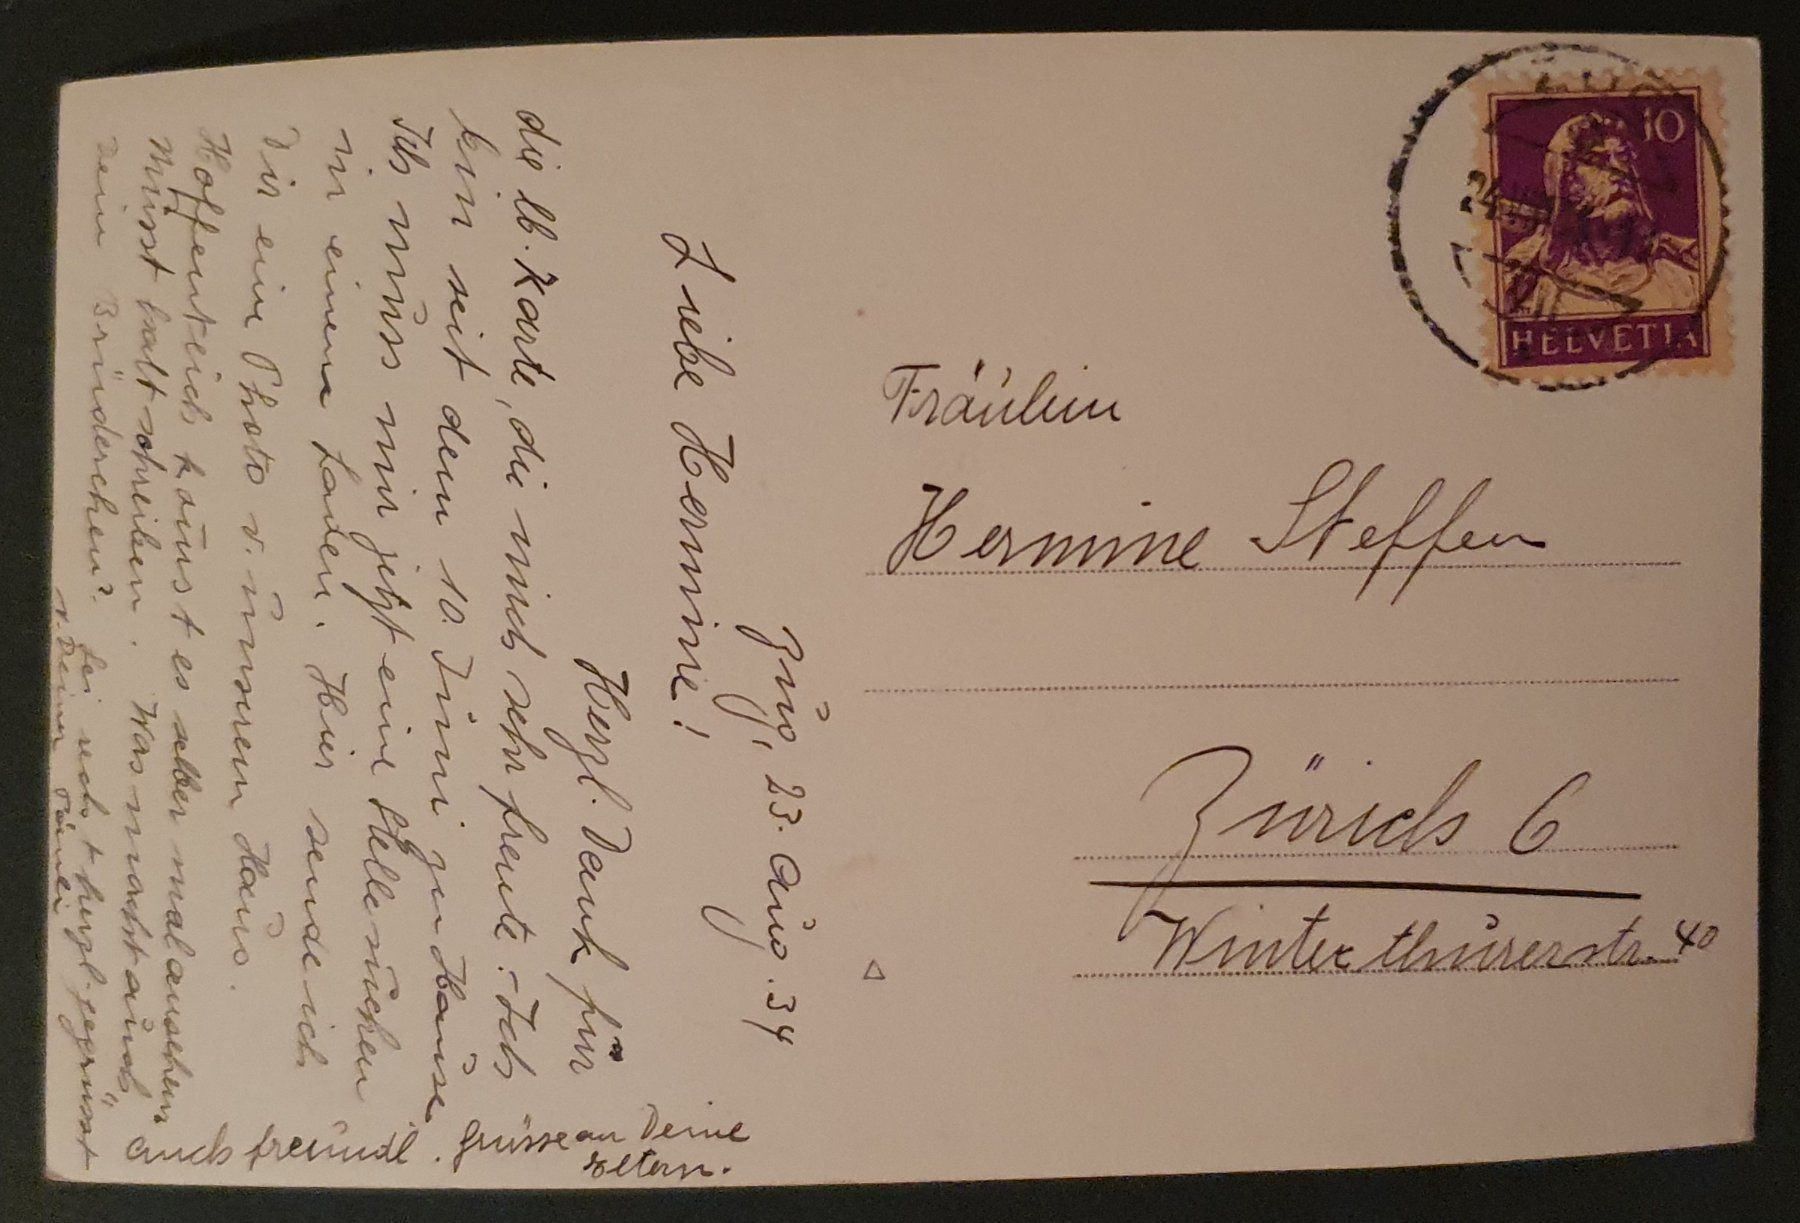 Zug, 23. Aug. 34
Liebe Hermine!
Herzl. Dank für
die lb. Karte, die mich sehr freute. – Ich
bin seit dem 10. Juni zu Hause.
Ich muss mir jetzt eine Stelle suchen
in einem Laden. Hier sende ich
Dir eine Photo v. unserem Haus.
Hoffentlich kannst es selber mal ansehen
Müsst halt schreiben. Was macht auch
Dein Brüderchen? Sei recht herzl. gegrüsst
v. Deiner
auch freundl. Grüsse an Deine
Eltern.
Fräulein
Hermine Steffen
Zürich 6
Winterthurerstr. 40
10
HELVETIA
24.VIII